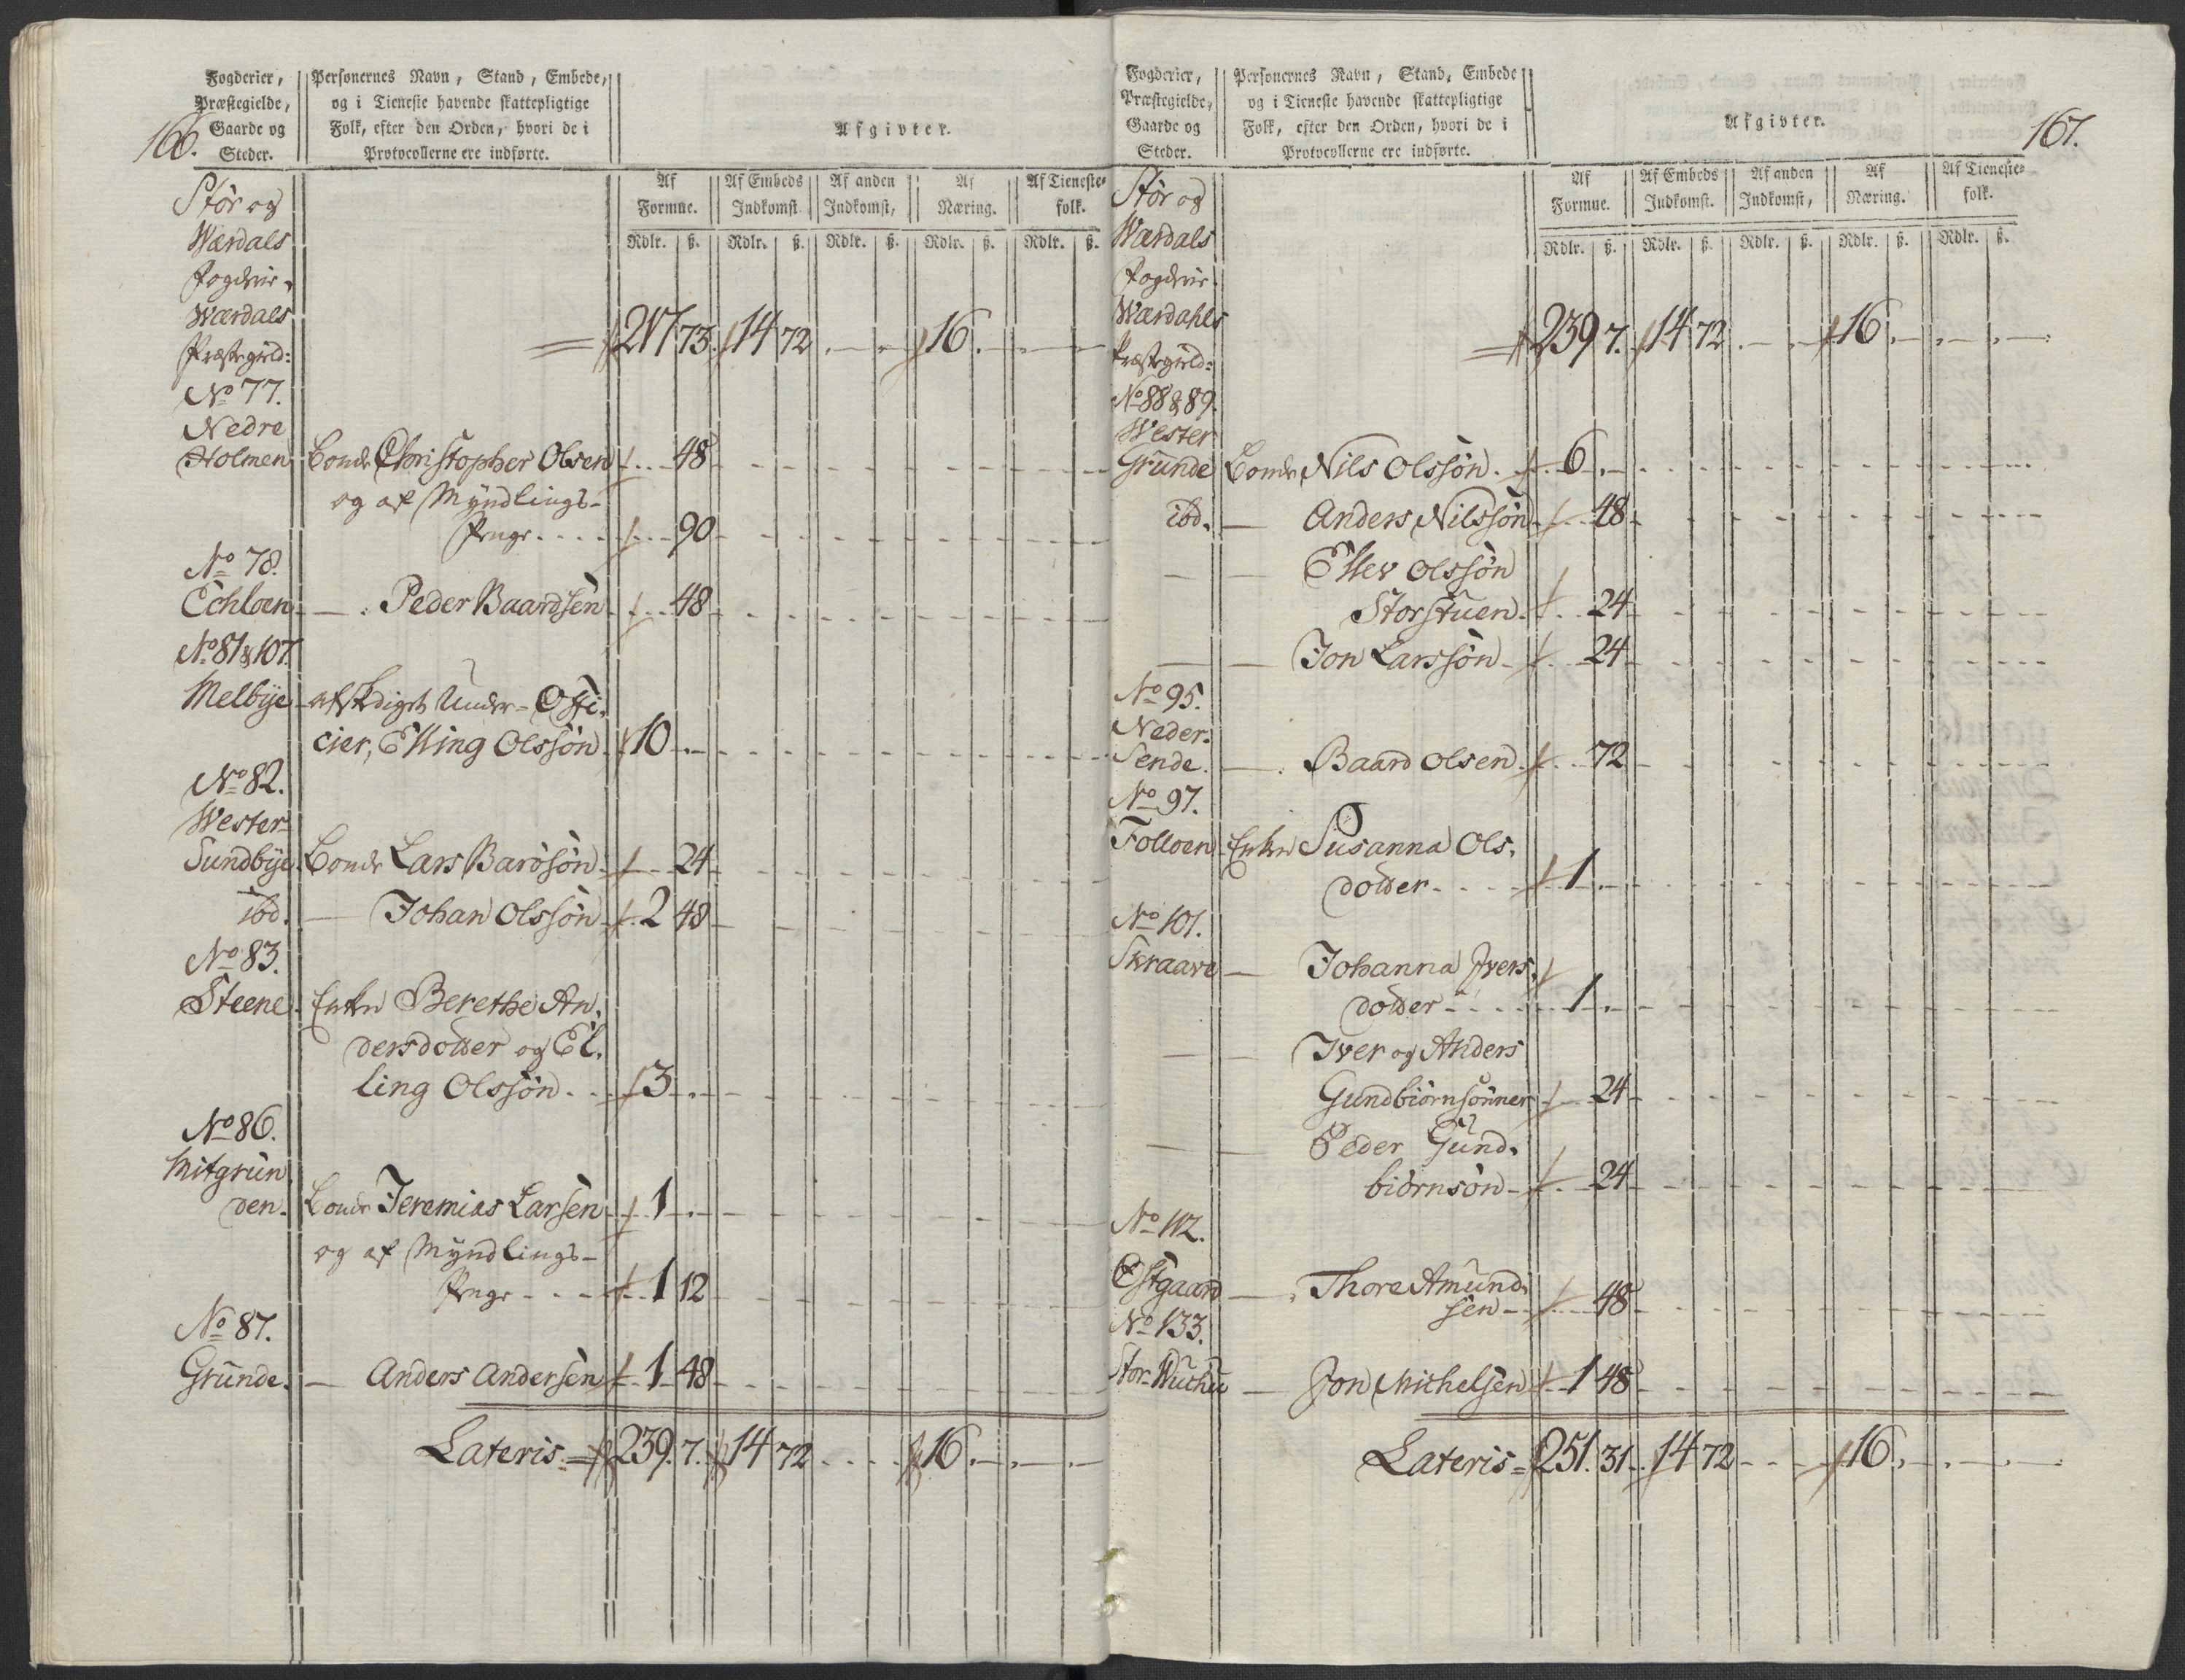 166.
Fogderier,
Præstegielde,
Gaarde og
Steder.
Personernes Navn, Stand, Embede,
og i Tieneste havende skattepligtige
Folk, efter den Orden, hvori de i
Protocollerne ere indførte.
Afgivter.
Af Formue. Af Embeds Indkomst. Af anden Indkomst, Af Næring. Af Tieneste-folk.
Rdlr. ß. Rdlr. ß. Rdlr. ß. Rdlr. ß. Rdlr. ß.
Stör og
Wærdals
Fogderie.
Wærdals
Præstegield:
217 73. 14 72 16
No 77.
Nedre
Holmen Bonde Christopher Olsen 48
og af Myndlings-
Penge 90
No 78.
Echloen — Peder Baardsen 48
No 81 & 107.
Melbye afskediget Under-Offi-
cier, Elling Olssön 10
No 82.
Wester-
Sundbye Bonde Lars Barosön 24
ibd. — Johan Olssön 2 48
No 83.
Steene Enken Berethe An-
dersdotter og El-
ling Olssön 3
No 86.
Mitgrun
den. Bonde Jeremias Larsen 1
og af Myndlings-
Penge 1 12
No 87.
Grunde. — Anders Andersen 1 48
Lateris 239. 7. 14 72 16
167.
Fogderier,
Præstegielde,
Gaarde og
Steder.
Personernes Navn, Stand, Embede
og i Tieneste havende skattepligtige
Folk, efter den Orden, hvori de i
Protocollerne ere indførte.
Afgivter.
Af Formue. Af Embeds Indkomst. Af anden Indkomst, Af Næring. Af Tieneste-folk.
Rdlr. ß. Rdlr. ß. Rdlr. ß. Rdlr. ß. Rdlr. ß.
Stör og
Wærdals
Fogderie.
Wærdahls
Præstegield:
239 7. 14 72 16
No 88 & 89.
Wester
Grunde Bonde Nils Olssön 6
ibd. — Anders Nilssön 48
— — Ellev Olssön
Storstuen 24
— — Jon Larssön 24
No 95.
Neder-
Sende. — Baard Olsen 72
No 97.
Folloen Enken Susanna Ols-
dotter 1
No 101.
Skraave — Johanna Ivers-
dotter 1
— — Iver og Anders
Gundbiörnsönner 24
— — Peder Gund-
biörnsön 24
No 112.
Östgaard — Thore Amund-
sen 48
No 133.
Stor-Wuchu — Jon Michelsen 1 48
Lateris 251. 31. 14 72 16